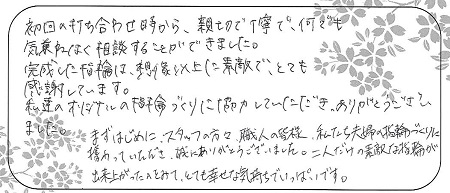 初回の打ち合わせ時から、親切で丁寧で、何でも
気兼ねなく相談することができました。
完成した指輪は、想像以上に素敵で、とても
感謝しています。
私達のオリジナルの指輪づくりに協力していただき、ありがとうござい
ました。
まずはじめに、スタッフの方々、職人の皆様、私たち夫婦の指輪づくりに
携わっていただき、誠にありがとうございました。二人だけの素敵な指輪が
出来上がったのをみて、とても幸せな気持ちでいっぱいです。